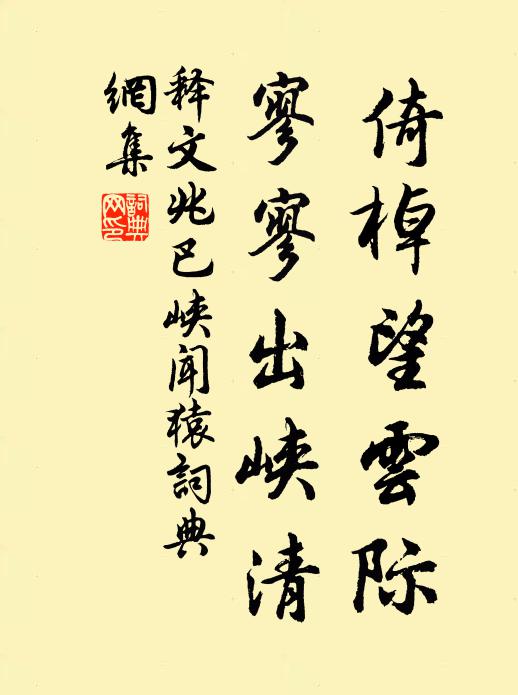 倚棹望雲际
寥寥出峡清
释文兆巴峡闻猿詞典
網集
詞典网印